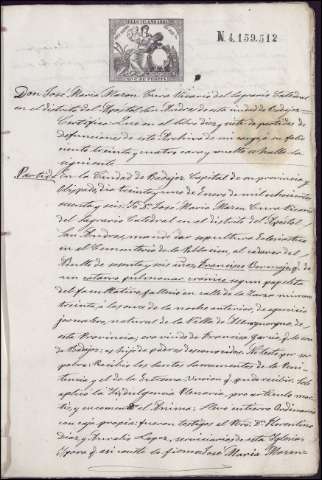 N. 4,159,512
Don José Maria Moren Cura Vicario del Sagrario Catedral
en el distrito del Apostol San Andres de esta ciudad de Badajoz.
Certifico: Que en el libro diez y siete de partidas de
defunciones de esta Parroquia de mi cargo al folio
ciento treinta y cuatro cara y vuelta se halla la
siguiente
Partida. En la Ciudad de Badajoz Capital de su provincia y
Obispado, dia treinta y uno de Enero de mil ochocientos
y seis: Yo D. José Maria Moren Cura Vicario
del Sagrario Catedral en el distrito del Apostol
San Andres, mandé dar sepultura eclesiastica
en el Cementerio de la Poblacion, al cadaver del
de sesenta y seis años, Francisco
un catarro pulmonar cronico segun papeleta
del facultativo, falleció en calle de la Zarza numero
treinta a las once de la noche anterior, de ejercicio
jornalero, natural de la Villa de Alburquerque, de
esta Provincia; era viudo de Francisca Garcia
de Badajoz; es hijo de padres desconocidos. No testó por
pobre: Recibió los Santos Sacramentos de la Peni-
tencia y el de la Extrema Uncion y
aplicó la Indulgencia Plenaria, pro articulo mor-
tis, y encomendó el Anima: Hizo entierro Ordinario
con caja propia: fueron testigos el Pbro. D. Florentino
Diaz y Aurelio Lopez, sirvientes de esta Iglesia
Y para que asi conste lo firmo José Maria Moren